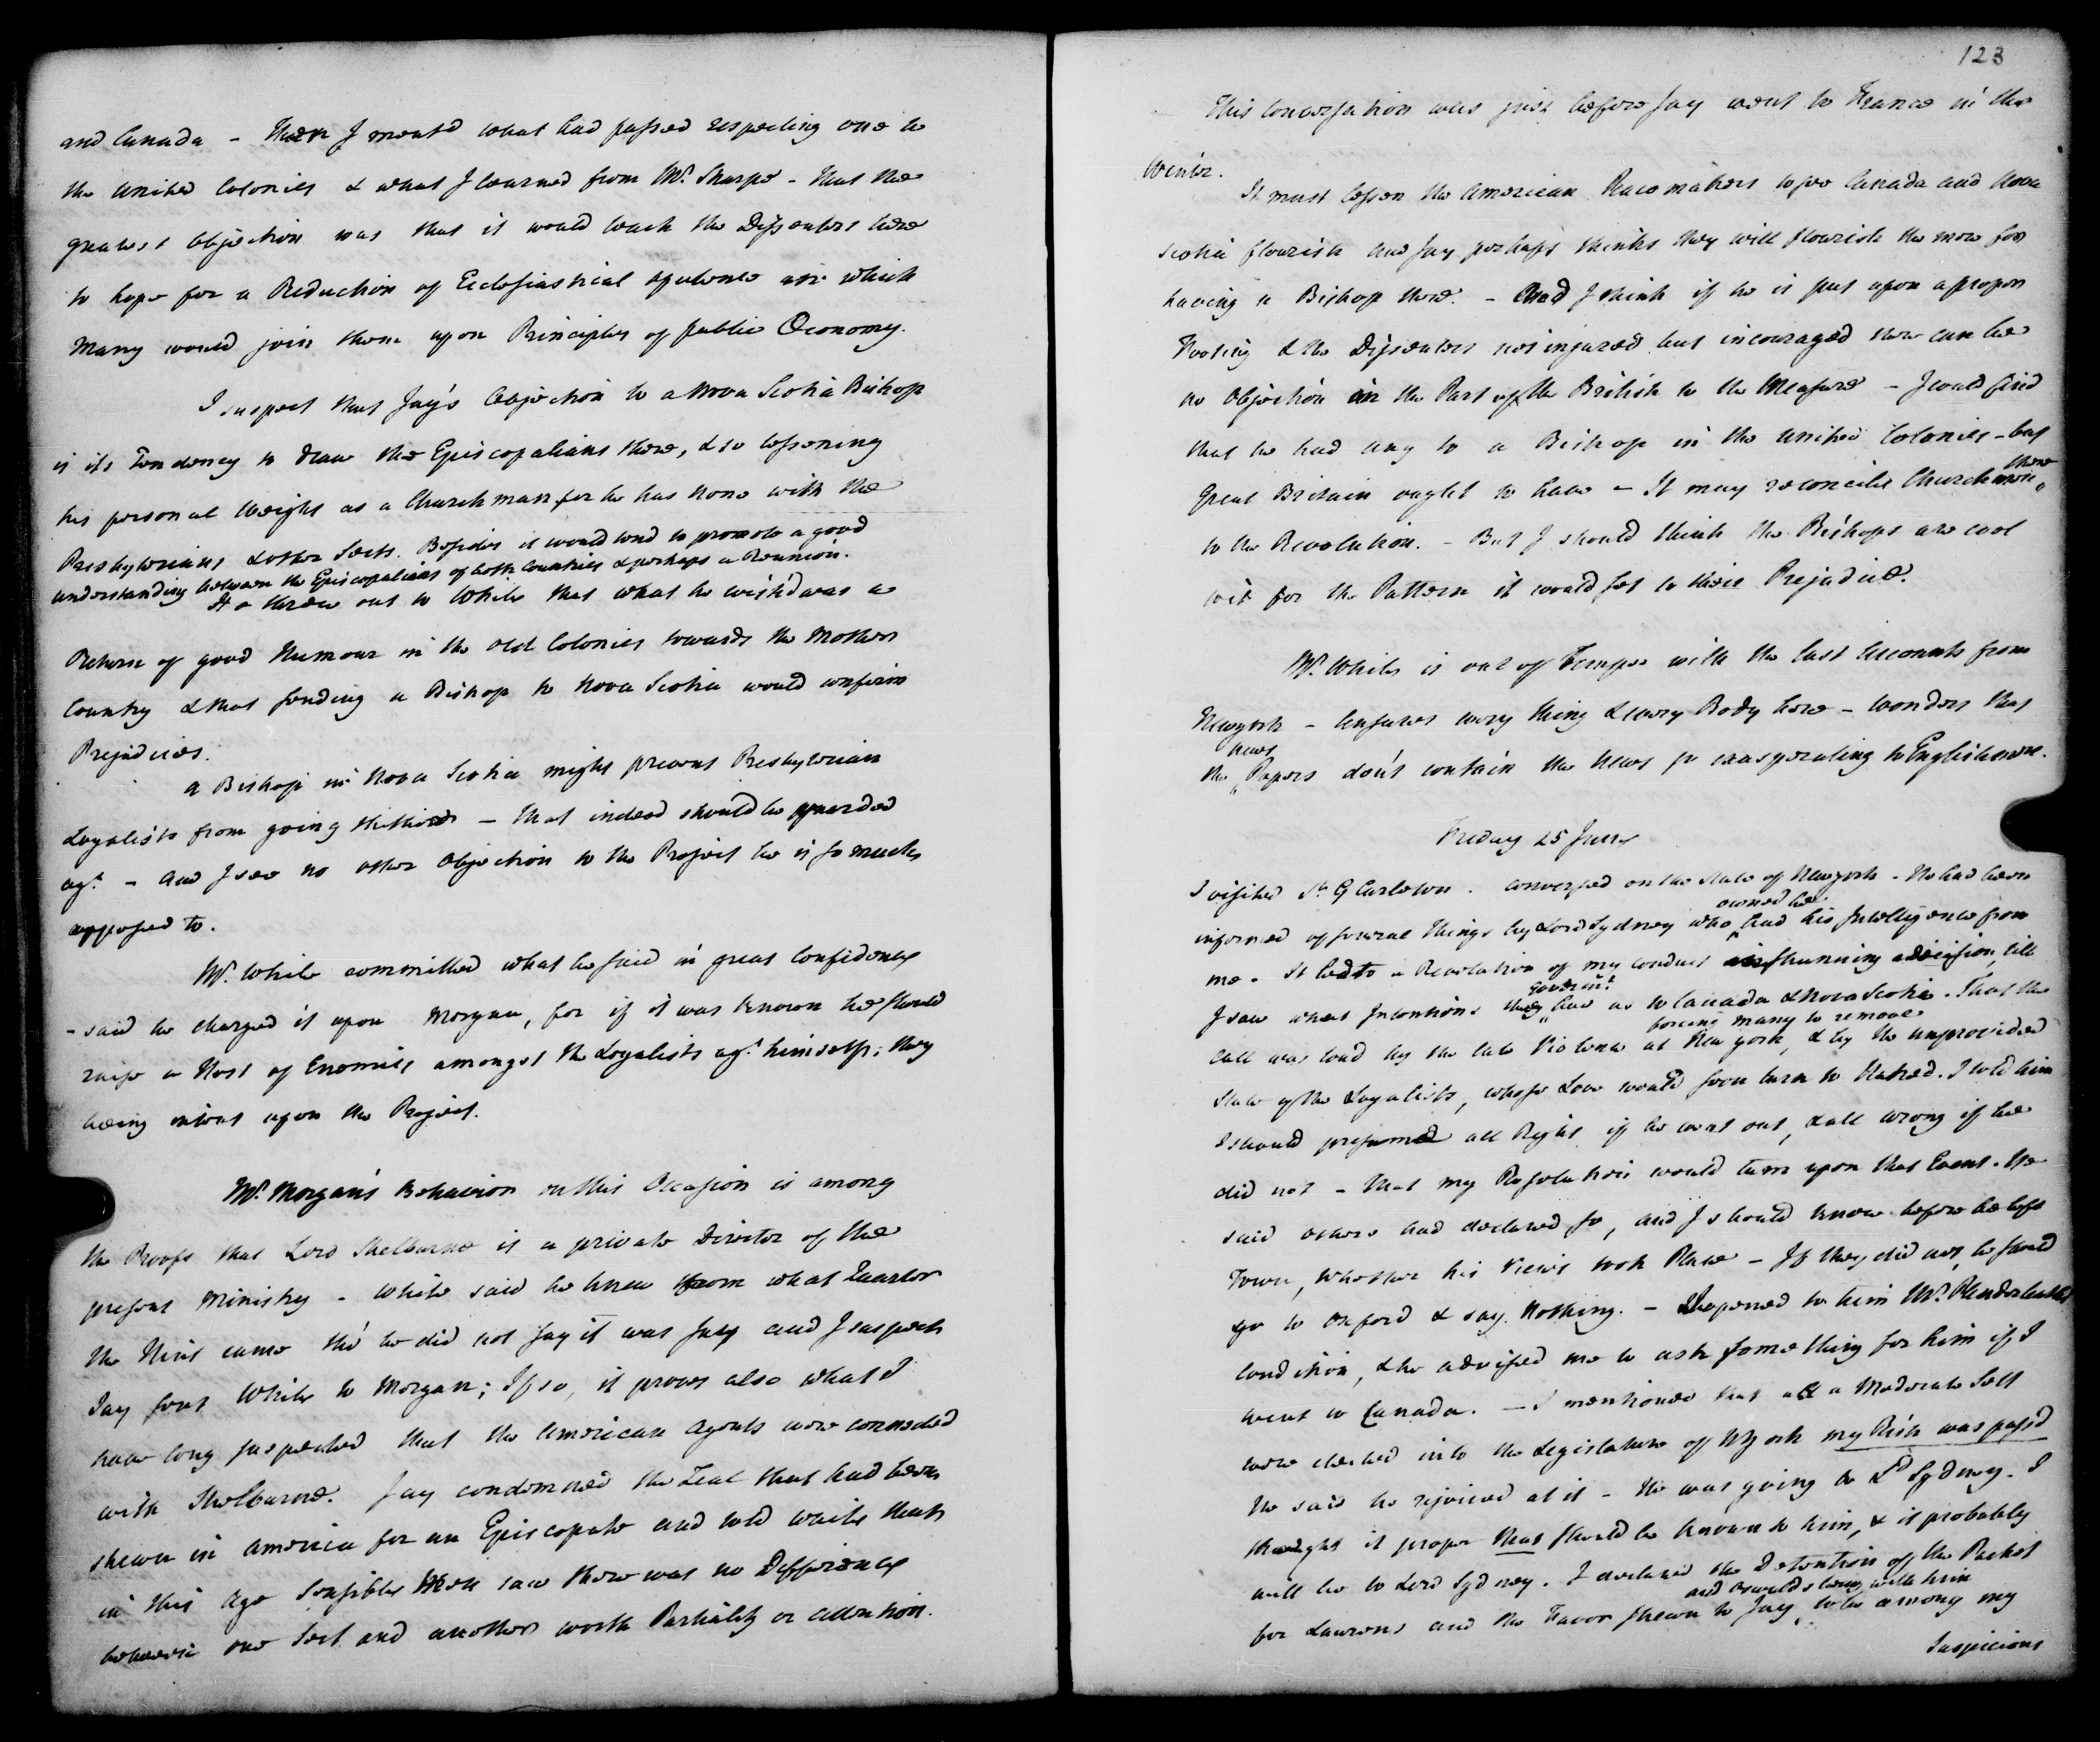 and Canada - Then I ment'd what had passed respecting one to
the united Colonies & what I learned from Mr. Sharpe - That the
greatest objection was that it would teach the Dissenters here
to hope for a Reduction of Ecclesiastical opulence in which
Many would join them upon Principles of public Oeconomy.
I suspect that Jay's Objection to a Nova Scotia Bishop
is its Tendency to draw the Episcopalians there, & so lessening
his personal Weight as a Churchman for he has none with the
Presbyterians & other Sects. Besides it would tend to promote a good
understanding between the Episcopalians of both Countries & perhaps a Reunion.
He threw out to White that what he wish'd was a
Return of good Humour in the old Colonies towards the Mother
Country & that sending a Bishop to Nova Scotia would confirm
Prejudices.
A Bishop in Nova Scotia might prevent Presbyterian
Loyalists from going thither - that indeed should be guarded
agt. - and I see no other objection to the Project he is so much
opposed to.
Mr. White committed what he said in great Confidence
- said he charged it upon Morgan, for if it was known he should
raise a Host of Enemies amongst the Loyalists agt. himself; they
being intent upon the Project.
Mr. Morgan's Behavior on this Occasion is among
the Proofs that Lord Shelburne is a private Director of the
present Ministry - White said he knew from what Quarter
the Hint came tho' he did not say it was Jay and I suspect
Jay sent White to Morgan; If so, it proves also what I
have long suspected that the American Agents were connected
with Shelburne. Jay condemned the Zeal that had been
shewn in America for an Episcopate and told White that
in this Age Sensible Men saw there was no Difference
between one Sect and another worth Partiality or attention.
123
This Conversation was just before Jay went to France in the
Winter.
It must lessen the American Peace makers to see Canada and Nova
Scotia flourish and Jay perhaps thinks they will flourish the more for
having a Bishop there. - And I think if he is put upon a proper
Footing & the Dissenters not injured but incouraged there can be
no Objection on the Part of the British to the Measure - I could find
that he had any to a Bishop in the united Colonies - but
Great Britain ought to have - It may reconcile Churchmen there
to the Revolution. - But I should think the Bishops are cool
to it for the Pattern it would set to their Prejudice.
Mr. White is out of Temper with the last Accounts from
Newyork - Censures every thing & every Body here - wonders that
the News Papers don't contain the News so exasperating to Englishmen.
Friday 25 June
I visited Sr. G Carleton. conversed on the State of Newyork - He had been
informed of several things by Lord Sydney who owned he had his Intelligence from
me. It led to a Revelation of my conduct in shunning a decision, till
I saw what Intentions Governmt. had as to Canada & Nova Scotia. That the
call was loud by the late Violence at New york, forcing many to remove & by the unprovided
State of the Loyalists, whose Love would soon turn to Hatred. I told him
I should presume all Right if he went out, & all wrong if he
did not - That my Resolution would turn upon that Event. He
said others had declared so, and I should know before he left
Town, whether his Views took Place - If they did not, he should
go to Oxford & say Nothing. - I opened to him Mr. Plenderleath's
condition, & he advised me to ask something for him if I
went to Canada. - I mentioned that as a Moderate Sett
were elected into the Legislature of NYork my Risk was pass'd
He said he rejoiced at it - He was going to Ld Sydney. I
thought it proper that should be known to him, & it probably
will be to Lord Sydney. I declared the Detention of the Packet
for Laurens and the Favor shewn to Jay, and Oswald's being with him to be among my
Suspicions